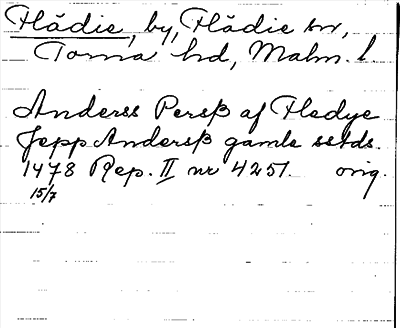 Flädie, by, Flädie sn,
Torna hd, Malm. l.
Anderss Persß af Fledye
Jepp Andersß gamle sstds.
1478 Rep. II nr 4251. orig.
15/7